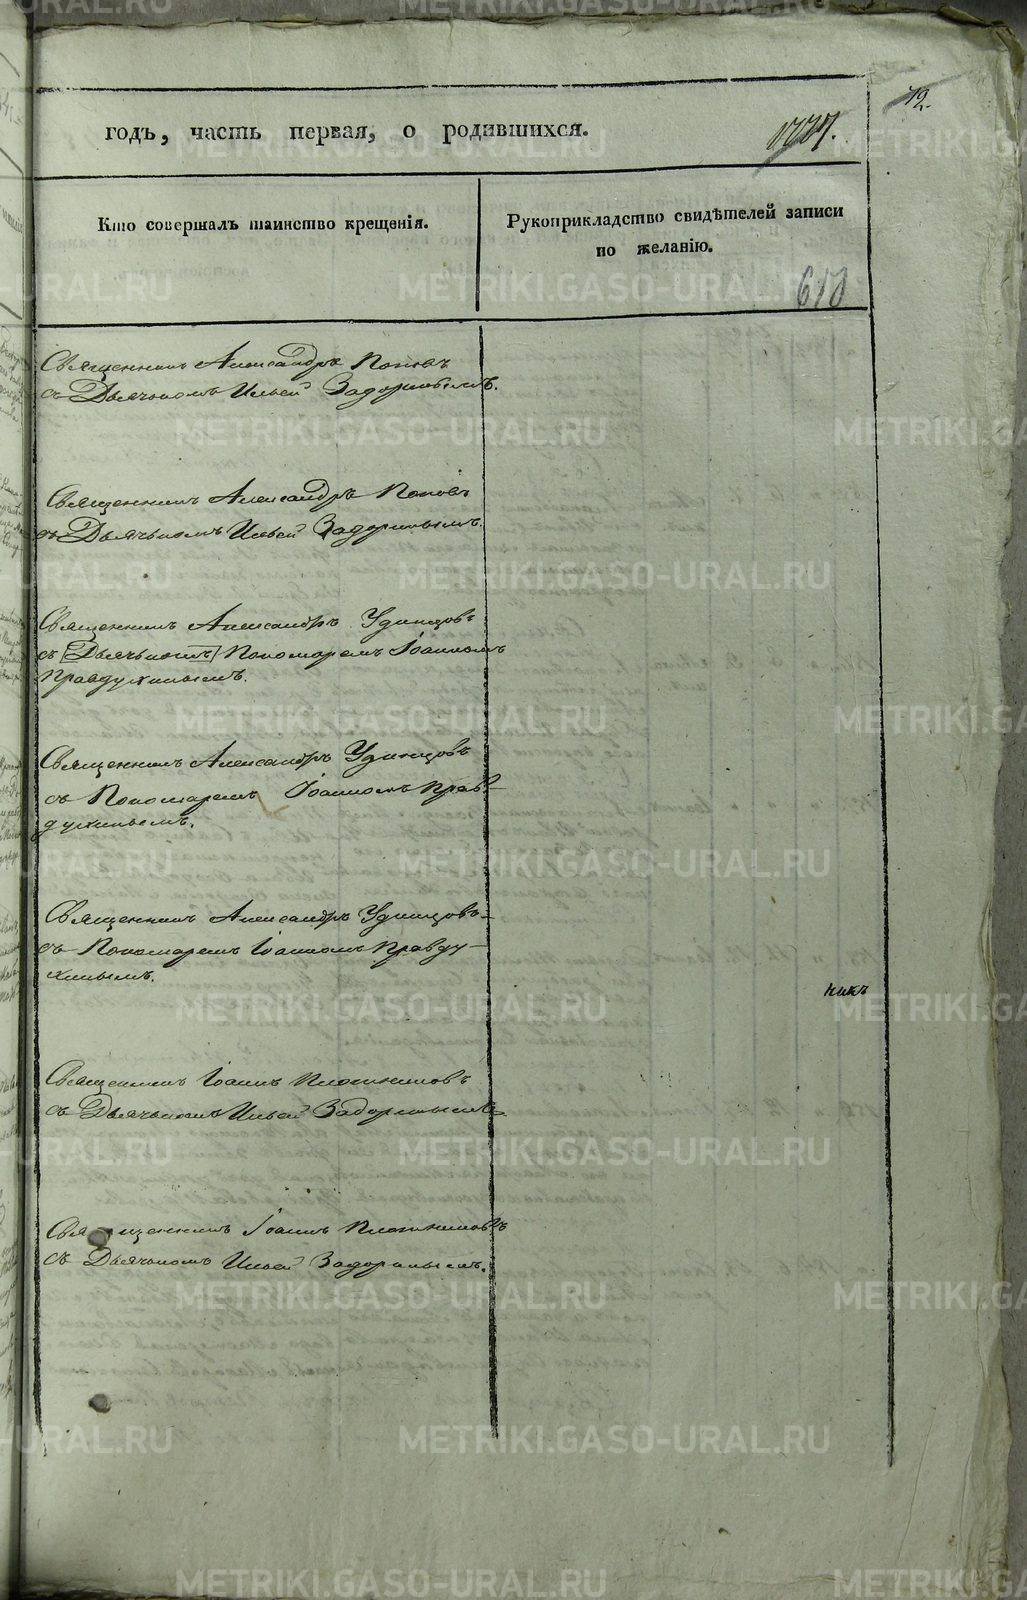 12.
годъ, часть первая, о родившихся.
Кто совершалъ таинство крещенія.
Рукоприкладство свидѣтелей записи
по желанію.
610
Священникъ Александръ Поповъ
съ Дьячкомъ Ильей Задоринымъ.
Священникъ Александръ Поповъ
съ Дьячькомъ Ильей Задоринымъ.
Священникъ Александръ Удинцовъ
съ [Дьячькомъ] Пономаремъ Іоанномъ
Правдухинымъ.
Священникъ Александръ Удинцовъ
съ Пономаремъ Іоанномъ Прав-
духинымъ.
Священникъ Александръ Удинцовъ
съ Пономаремъ Іоанномъ Правду-
хинымъ.
никъ
Священникъ Іоаннъ Плотниковъ
съ Дьячькомъ Ильей Задоринымъ
Священникъ Іоаннъ Плотниковъ
съ Дьячкомъ Ильей Задоринымъ.
METRIKI.GASO-URAL.RU